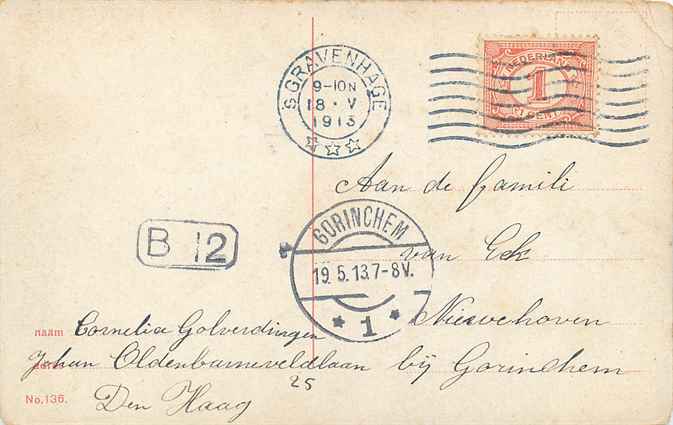 'SGRAVENHAGE
9-10N
18·V
1913
NEDERLAND
1
CENT
Aan de familie
GORINCHEM
19.5.13.7-8V.
1
van Eck
B 12
Nieuwehoven
bij Gorinchem
naam Cornelia Golverdingen
Johan Oldenbarneveldlaan
25
Den Haag
No.136.